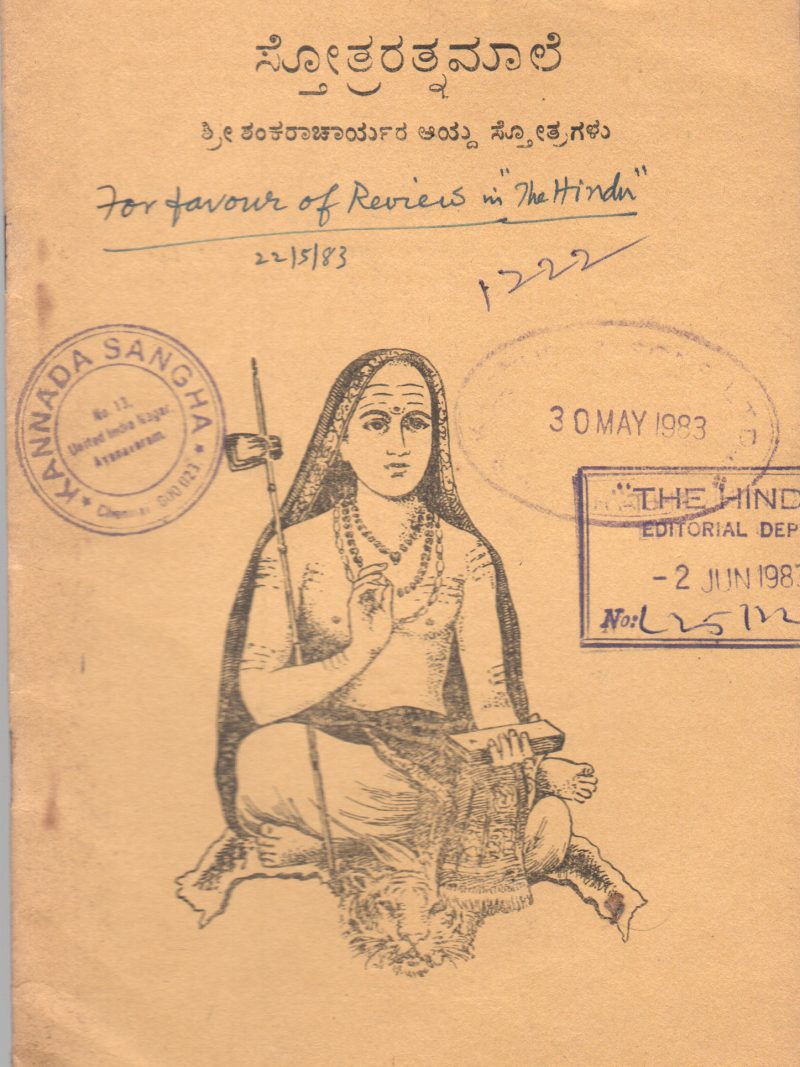 ಸ್ತೋತ್ರರತ್ನಮಾಲೆ
ಶ್ರೀ ಶಂಕರಾಚಾರ್ಯರ ಆಯ್ದ ಸ್ತೋತ್ರಗಳು
For favour of Review in "The Hindu"
22/5/83
1222
KANNADA SANGHA
No. 13,
United India Nagar,
Ayanavaram.
Chennai 600 023.
30 MAY 1983
"THE HIND
EDITORIAL DEP
- 2 JUN 1983
No: